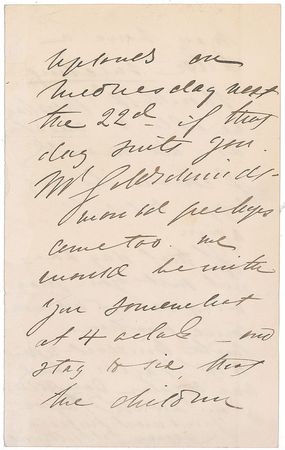 Uplands on
Wednesday next
the 22d if that
day suits you.
Mr Goldschmidt
would perhaps
come too. we
would be with
you somewhat
at 4 oclock – and
stay to see, that
the children